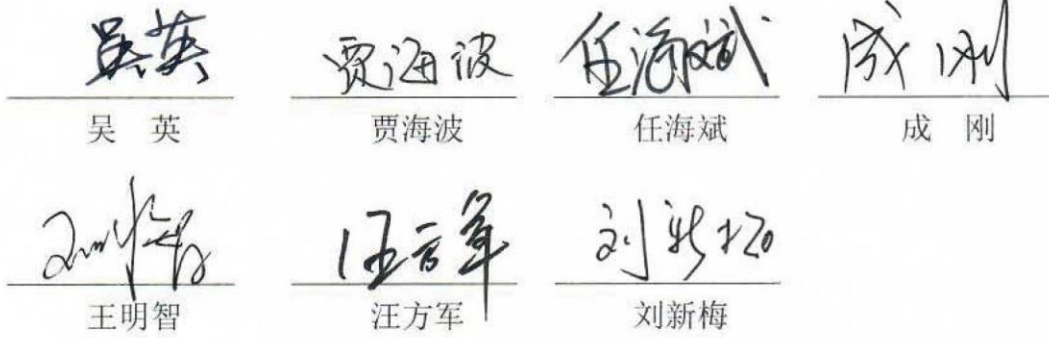 吴英 贾海波 任海斌 成刚
吴 英 贾海波 任海斌 成 刚
王明智 汪方军 刘新梅
王明智 汪方军 刘新梅